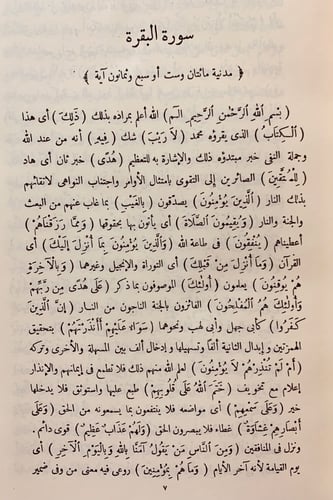 سورة البقرة
﴿ مدنية مائتان وست أو سبع وثمانون آية ﴾
( بِسْمِ اللهِ الرَّحْمٰنِ الرَّحِيمِ الٓمٓ ) الله أعلم بمراده بذلك ( ذٰلِكَ ) أى هذا
( الْكِتَابُ ) الذى يقرؤه محمد ( لَا رَيْبَ ) شك ( فِيهِ ) أنه من عند الله
وجملة النفى خبر مبتدؤه ذلك والإشارة به للتعظيم ( هُدًى ) خبر ثان أى هاد
( لِلْمُتَّقِينَ ) الصائرين إلى التقوى بامتثال الأوامر واجتناب النواهى لاتقائهم
بذلك النار ( الَّذِينَ يُؤْمِنُونَ ) يصدّقون ( بِالْغَيْبِ ) بما غاب عنهم من البعث
والجنة والنار ( وَيُقِيمُونَ الصَّلَاةَ ) أى يأتون بها بحقوقها ( وَمِمَّا رَزَقْنَاهُمْ )
أعطيناهم ( يُنْفِقُونَ ) فى طاعة الله ( وَالَّذِينَ يُؤْمِنُونَ بِمَا أُنْزِلَ إِلَيْكَ ) أى
القرآن ( وَمَا أُنْزِلَ مِنْ قَبْلِكَ ) أى التوراة والإنجيل وغيرهما ( وَبِالْآخِرَةِ
هُمْ يُوقِنُونَ ) يعلمون ( أُولٰئِكَ ) الموصوفون بما ذكر ( عَلَى هُدًى مِنْ رَبِّهِمْ
وَأُولٰئِكَ هُمُ الْمُفْلِحُونَ ) الفائزون بالجنة الناجون من النار ( إِنَّ الَّذِينَ
كَفَرُوا ) كأبى جهل وأبى لهب ونحوهما ( سَوَاءٌ عَلَيْهِمْ أَأَنْذَرْتَهُمْ ) بتحقيق
الهمزتين وإبدال الثانية ألفا وتسهيلها وإدخال ألف بين المسهلة والأخرى وتركه
( أَمْ لَمْ تُنْذِرْهُمْ لَا يُؤْمِنُونَ ) لعلم الله منهم ذلك فلا تطمع فى إيمانهم والإنذار
إعلام مع تخويف ( خَتَمَ اللهُ عَلَى قُلُوبِهِمْ ) طبع عليها واستوثق فلا يدخلها
خير ( وَعَلَى سَمْعِهِمْ ) أى مواضعه فلا ينتفعون بما يسمعونه من الحق ( وَعَلَى
أَبْصَارِهِمْ غِشَاوَةٌ ) غطاء فلا يبصرون الحق ( وَلَهُمْ عَذَابٌ عَظِيمٌ ) قوى دائم .
ونزل فى المنافقين ( وَمِنَ النَّاسِ مَنْ يَقُولُ آمَنَّا بِاللهِ وَبِالْيَوْمِ الْآخِرِ ) أى
يوم القيامة لأنه آخر الأيام ( وَمَا هُمْ بِمُؤْمِنِينَ ) روعى فيه معنى من وفى ضمير
٧